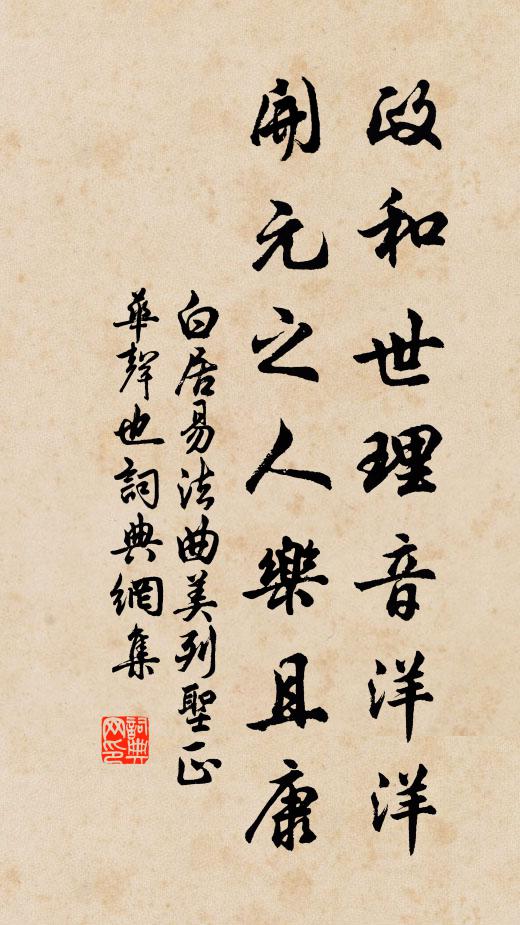 政和世理音洋洋
開元之人樂且康
白居易法曲美列聖正
華聲也詞典網集
詞典网印